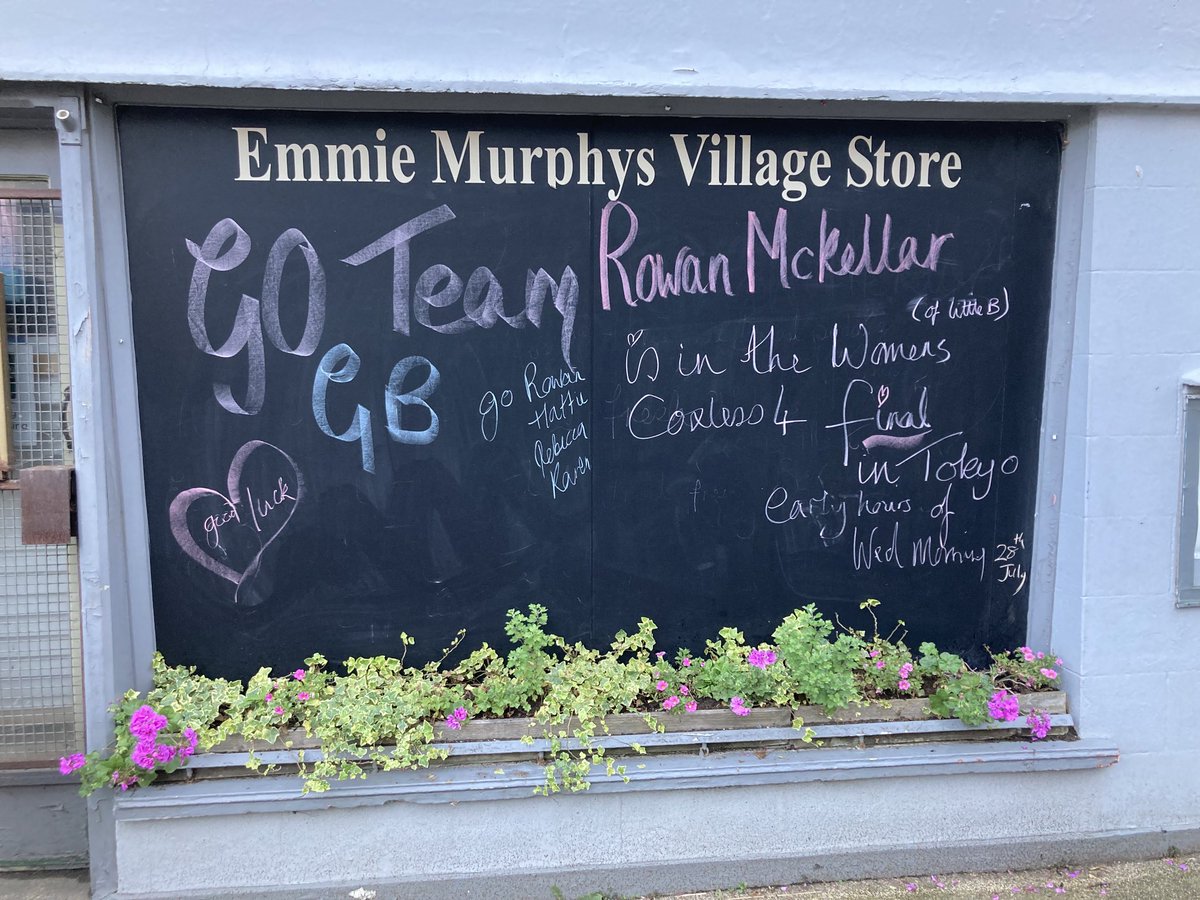 Emmie Murphys Village Store
GO Team
GB
go Rowan
Hattie
Rebecca
Karen
good luck
Rowan Mckellar
(of little B)
is in the Womens
Coxless 4 final
in Tokyo
early hours of
Wed Morning 28th
July